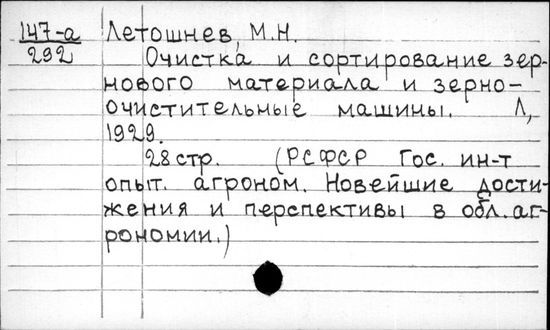 147-а Летошнев М.Н.
292 Очистка и сортирование зер-
нового материала и зерно-
очистительные машины. Л,
1929.
28 стр. (РСФСР Гос. ин-т
опыт. агроном. Новейшие дости-
жения и перспективы в обл. аг-
рономии.)